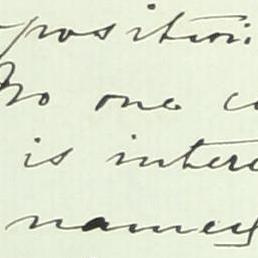 position
No one c
is intere
names